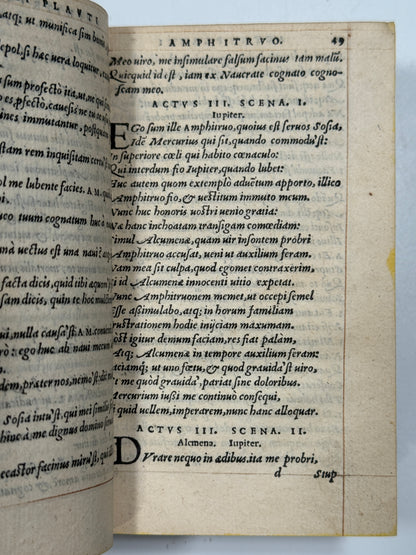 N PLAVTI
atq; ut munifica sim bonis
epol, si hæc uera loquitur, exa
m profectò ita, ut ne qui
o, pfectò, cauesis ne tu
ines immutantur, postq
am rem inquisitam certum
o me lubente facies. A M. qu
tuo, cognatum huc à
uectus est una naui: æq
facta dicis, quid tibi æquum
sam dicis, quin te multem
ui, nulla causa'st. A M. commen
rò: ego huc ab naui mecum
iem, præter nos, nemo est: dic
Sosia intu'st, qui mei simillim
hinc à me dignum est
ecastor facinus miru'st, qui
AMPHITRVO. 49
Meo uiro, me insimulare falsum facinus tam malũ.
Quicquid id est, iam ex Naucrate cognato cogno-
scam meo.
ACTVS III. SCENA. I.
Iupiter.
EGo sum ille Amphitruo, quoius est seruos Sosia,
Idẽ Mercurius qui sit, quando commodu'st:
In superiore cœli qui habito cœnaculo:
Qui interdum fio Iupiter, quando lubet:
Huc autem quom exemplò aduẽtum apporto, illico
Amphitruo fio, & uestitum immuto meum.
Nunc huc honoris uostri uenio gratia:
Ne hanc inchoatam transigam comœdiam:
simul Alcumenæ, quam uir insontem probri
Amphitruo accusat, ueni ut auxilium feram.
Nam mea sit culpa, quod egomet contraxerim,
id Alcumenæ innocenti uitio expetat.
Nunc Amphitruonem memet, ut occepi semel
Esse assimulabo, atq; in horum familiam
frustrationem hodie inijciam maxumam.
ost igitur demum faciam, res fiat palam,
Atq; Alcumenæ in tempore auxilium feram:
aciamq; ut uno fœtu, & quod grauida'st uiro,
et me quod grauida', pariat sine doloribus.
Mercurium iussi me continuò consequi,
i quid uellem, imperarem, nunc hanc alloquar.
ACTVS III. SCENA. II.
Alcmena. Iupiter.
DVrare nequo in ædibus. ita me probri,
d Stup